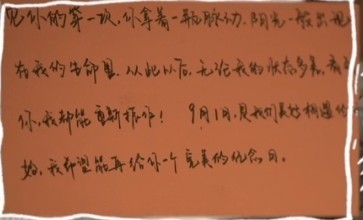 见你的第一次,你拿着一瓶脉动,阳光一般出现
在我的生命里,从此以后,无论我的状态多差,看
你,我都能重新振作! 9月1日,是我们美好相遇
始,我希望能再给你一个完美的纪念日。